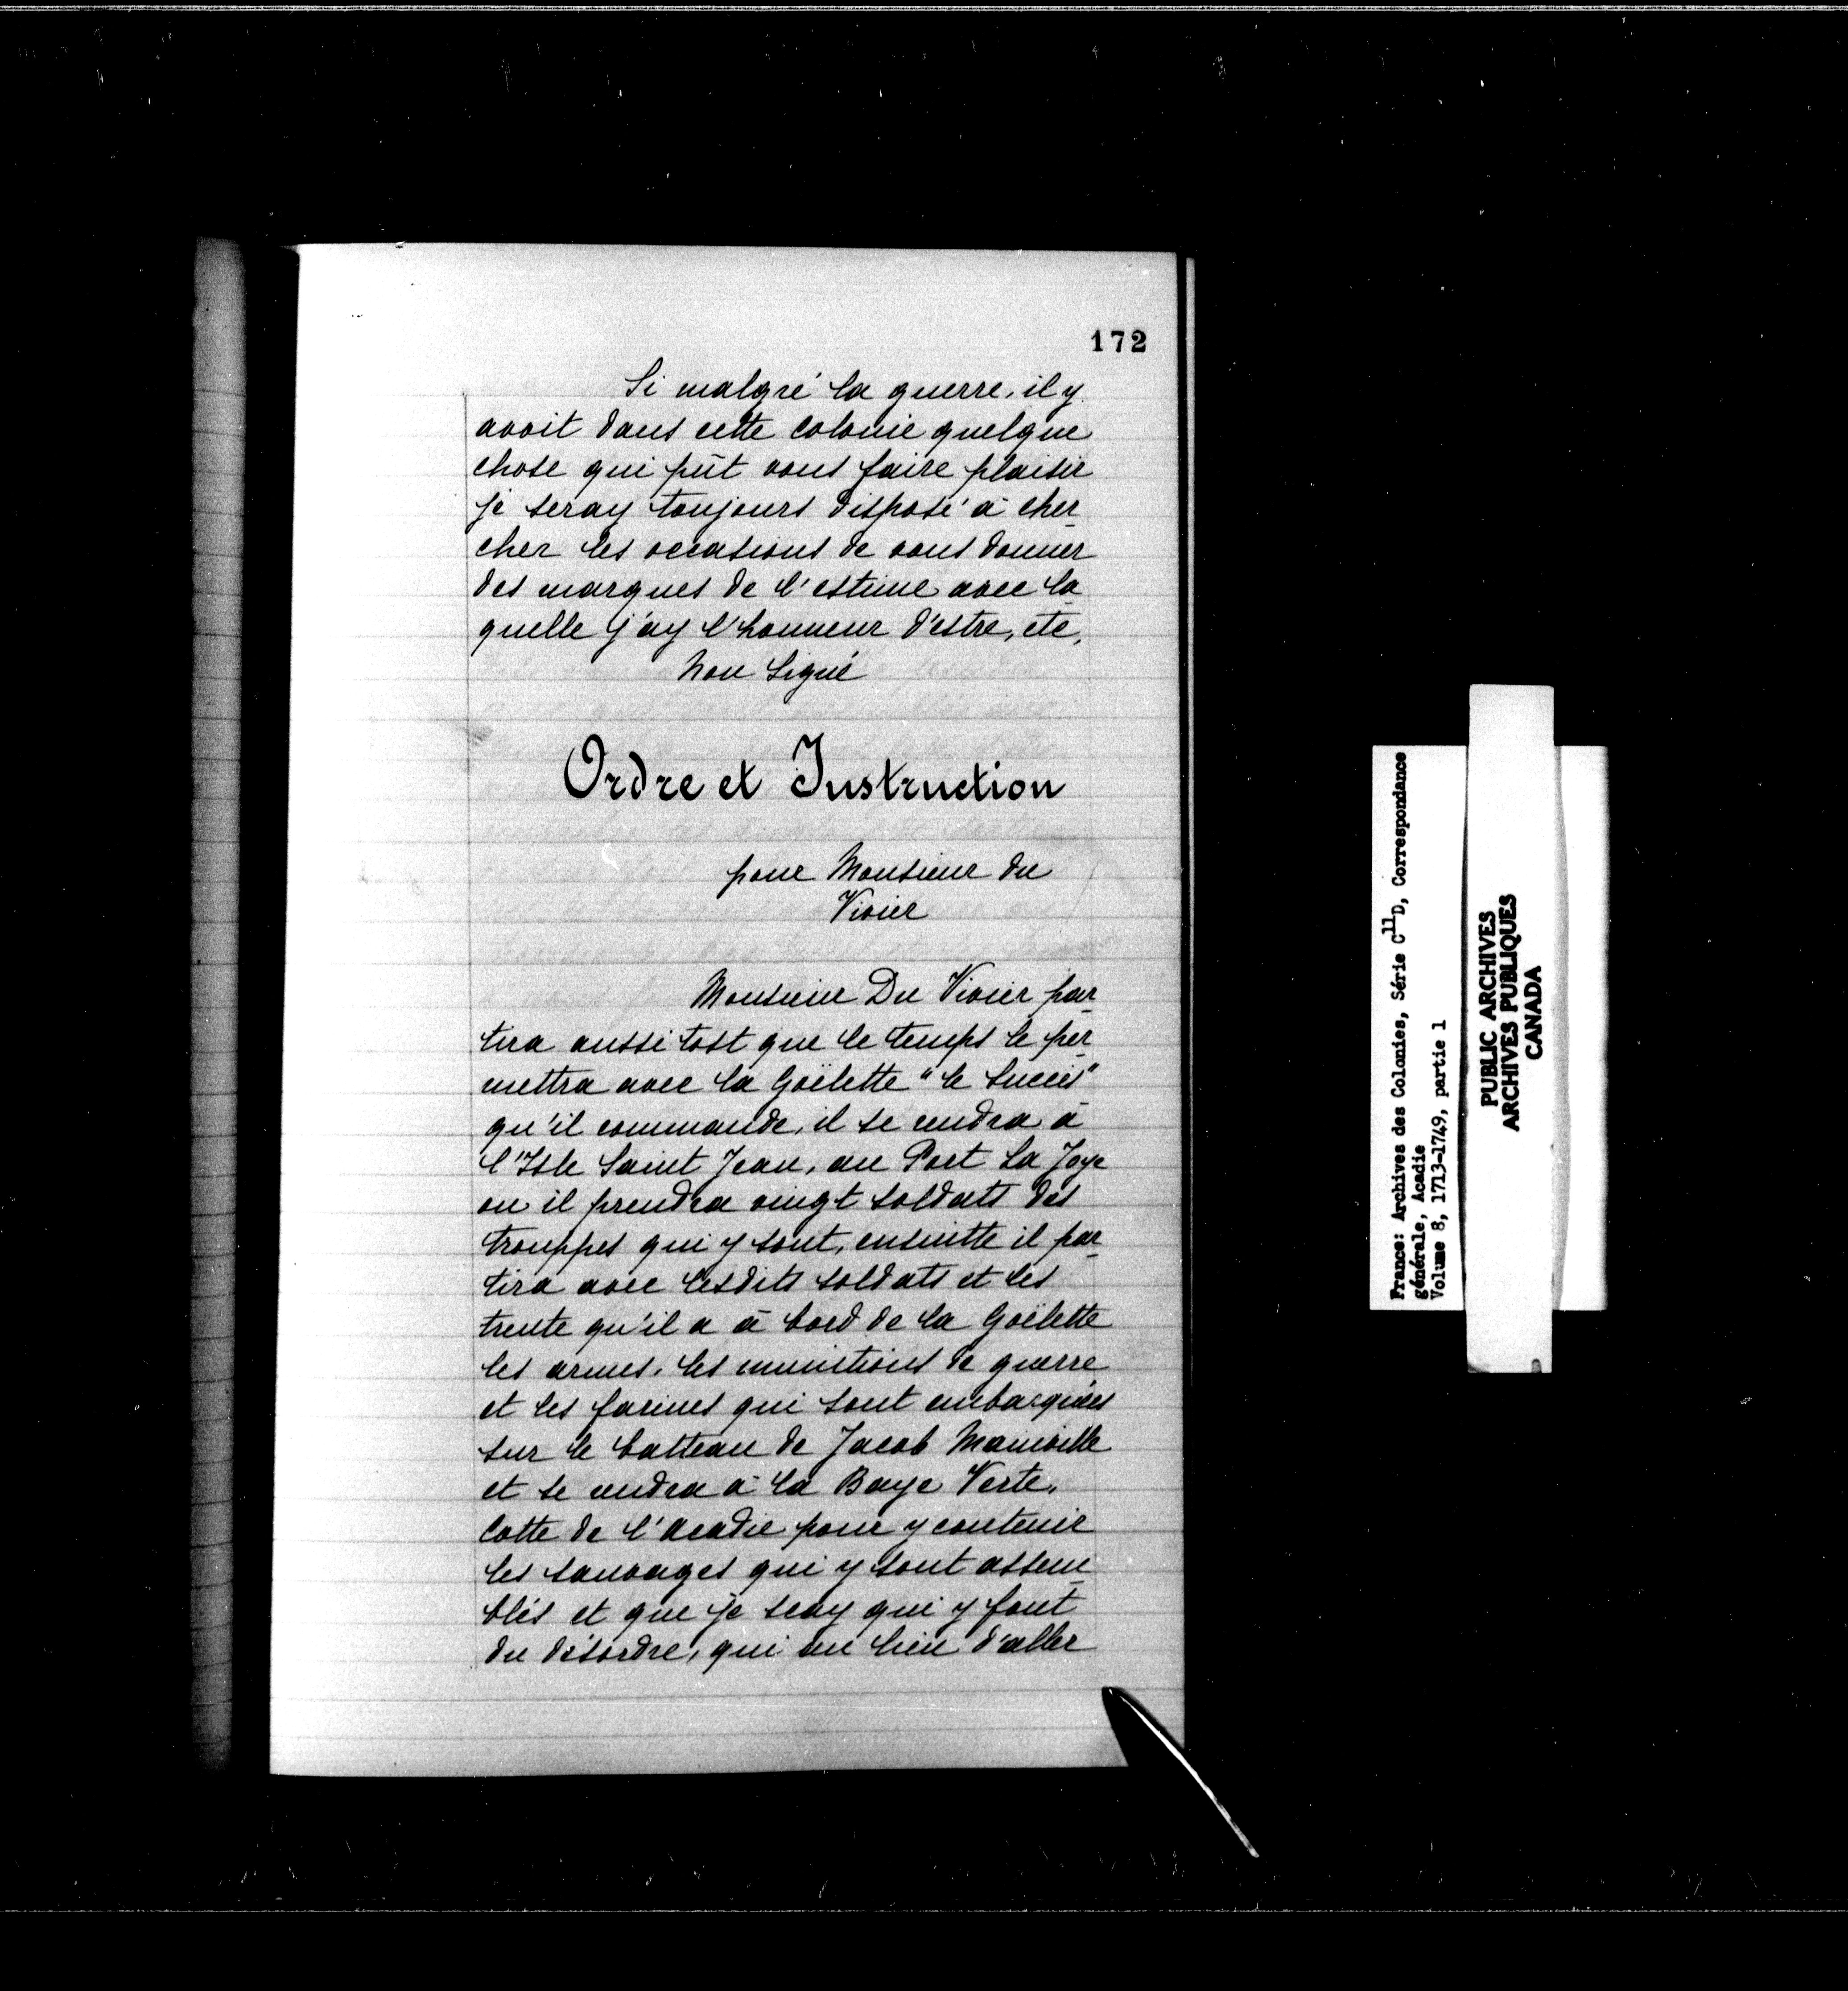 172
Si malgré la guerre, il y
avoit dans cette colonie quelque
chose qui pût vous faire plaisir
je seray toujours disposé à cher
cher les occasions de vous donner
des marques de l'estime avec la
quelle j'ay l'honneur d'estre, etc,
Non Signé
Ordre et Instruction
pour Monsieur du
Vivier
Monsieur Du Vivier par
tira aussi tost que le temps le per
mettra avec la Goëlette "le Succès"
qu'il commande, il se rendra à
l'Isle Saint Jean, au Port La Joye
ou il prendra vingt soldats des
trouppes qui y sont, ensuitte il par
tira avec lesdits soldats et les
trente qu'il a à bord de la Goëlette
les armes, les munitions de guerre
et les farines qui sont embarquées
sur le batteau de Jacob
et se rendra à la Baye Verte,
Cotte de l'Acadie pour y contenir
les sauvages qui y sont assem
blés et que je scay qui y font
du désordre, qui au lieu d'aller
France: Archives des Colonies, Série C11D, Correspondance
générale, Acadie
Volume 8, 1713-1749, partie 1
PUBLIC ARCHIVES
ARCHIVES PUBLIQUES
CANADA